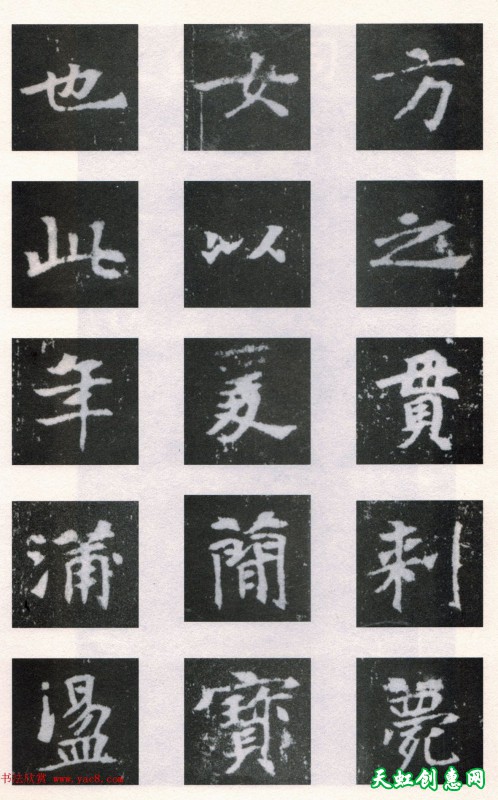 方之貫刺薨
女以簡寶
也此年盪
书法欣赏 www.yac8.com
天虹创惠网